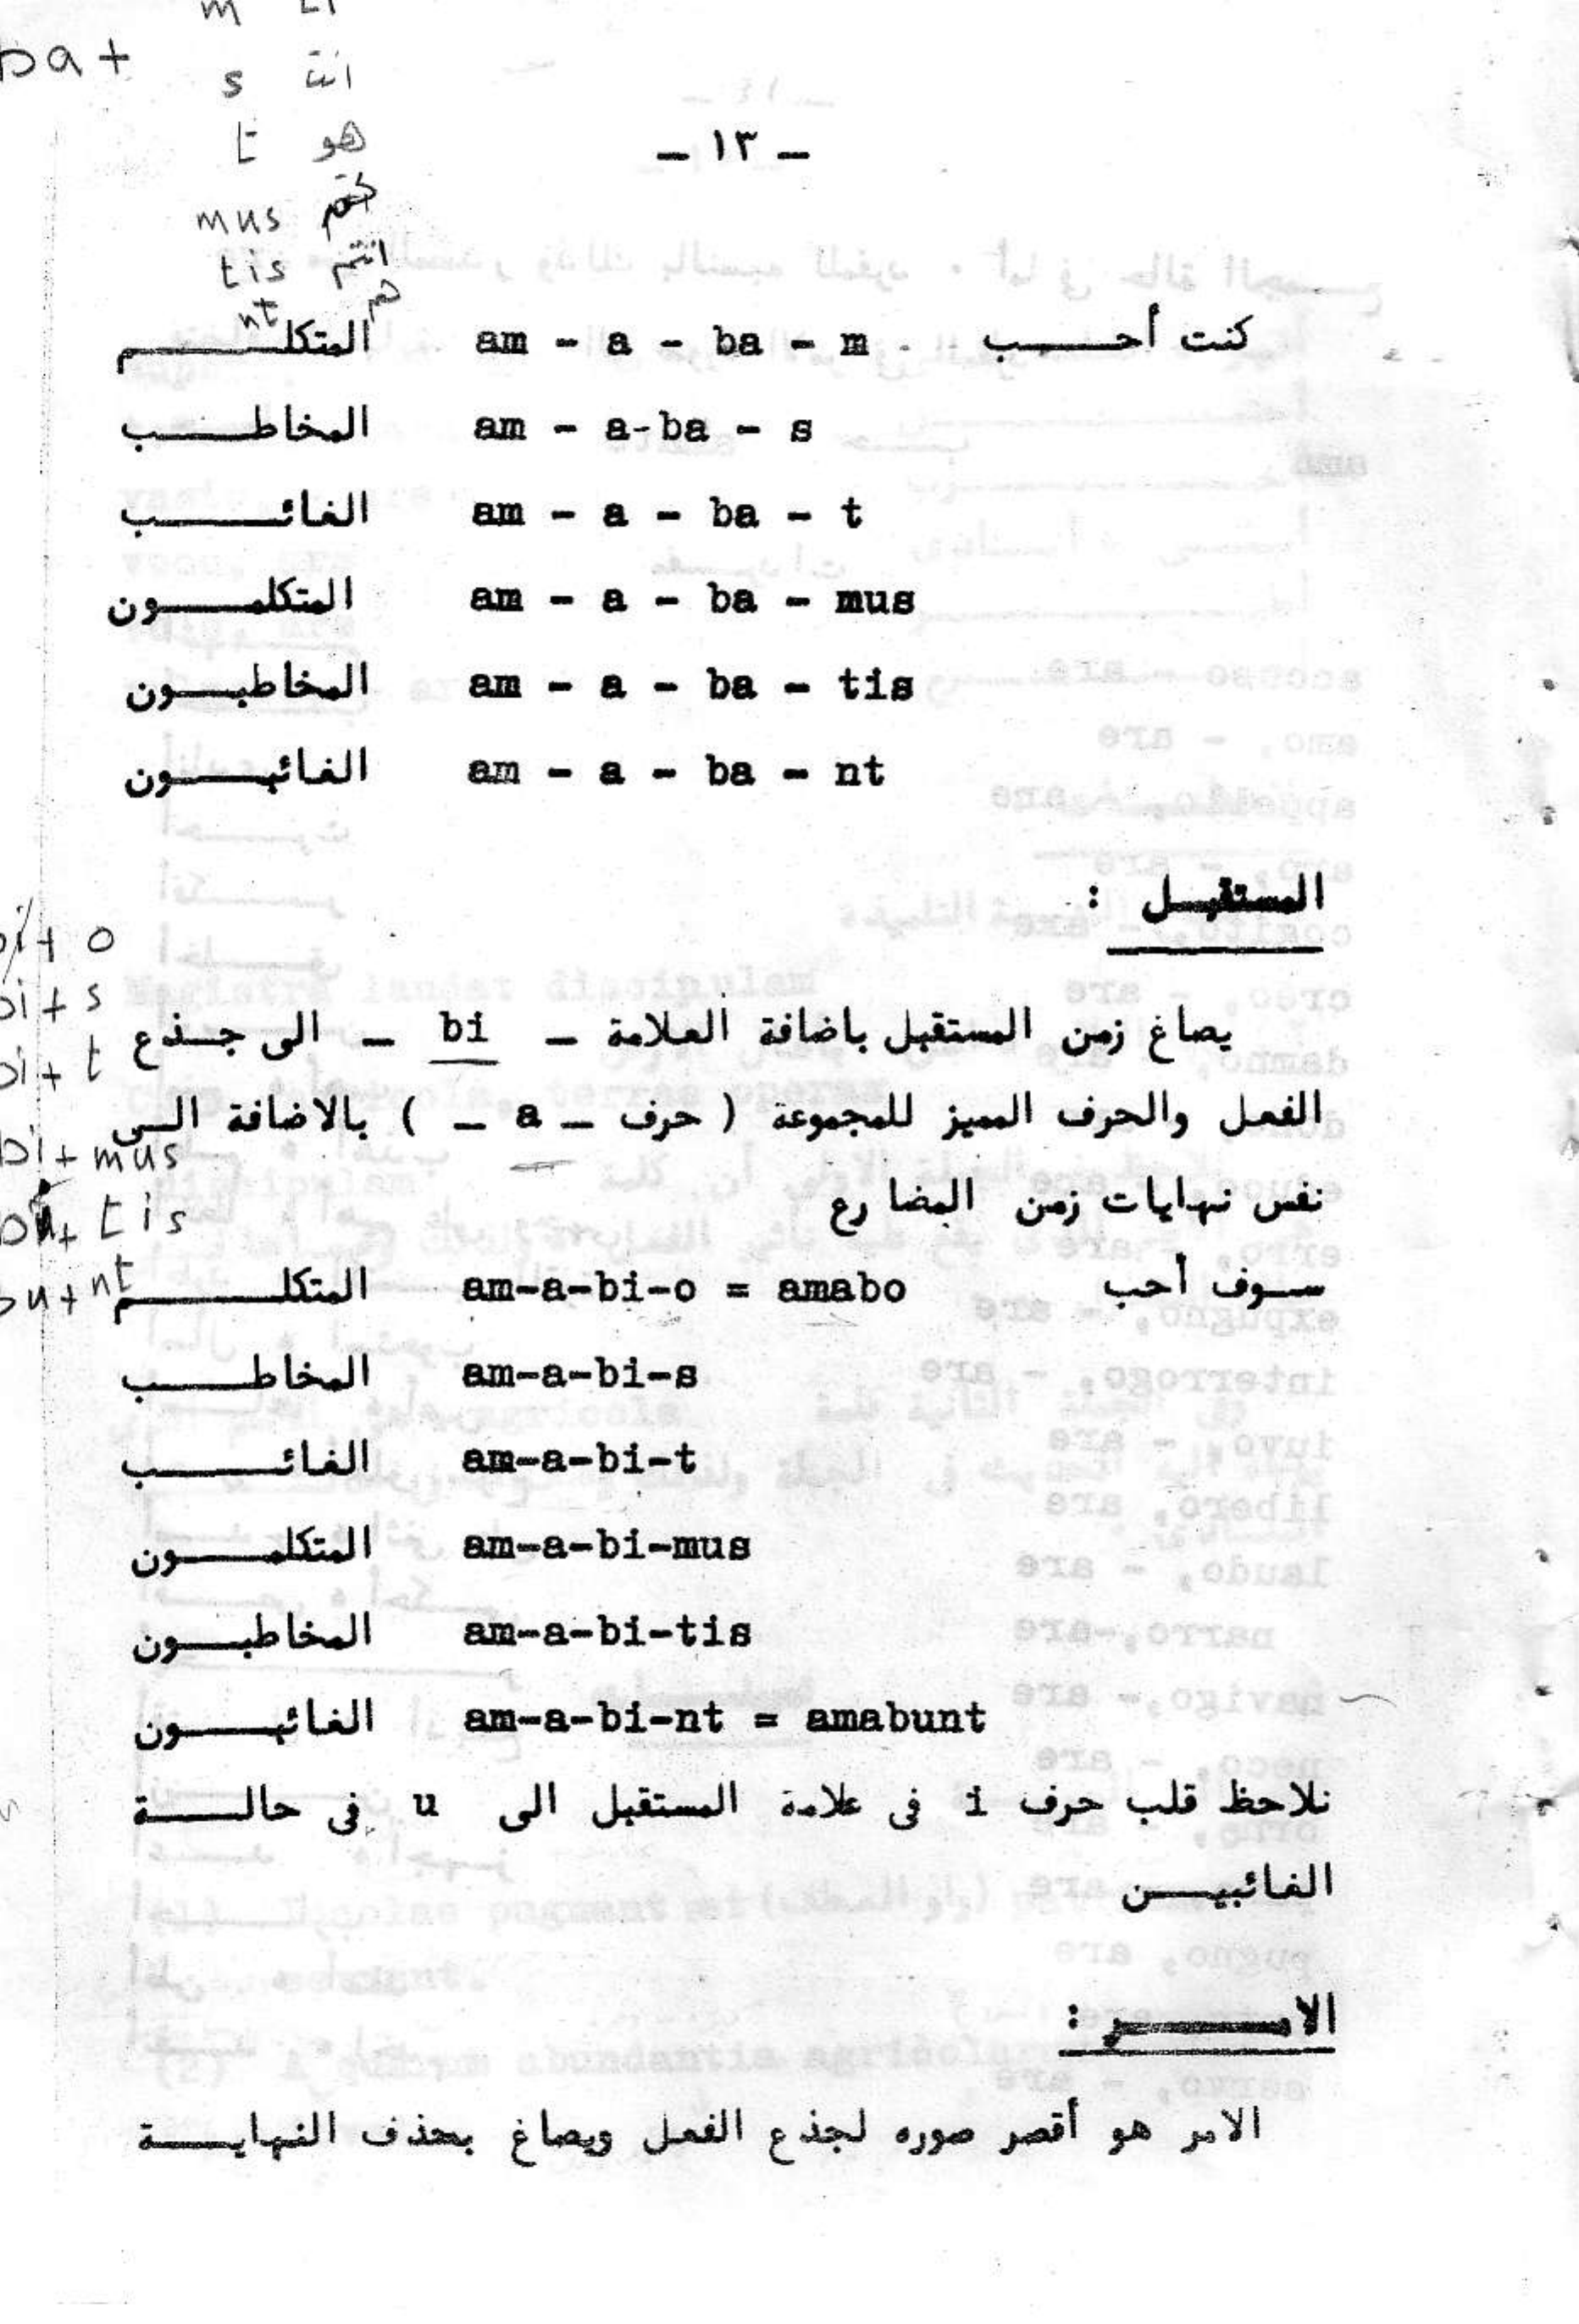 ba +
s انت
t هو
- ١٣ -
mus
tis انتم
nt هم
كنت أحب am - a - ba - m المتكلم
am - a-ba - s المخاطب
am - a - ba - t الغائب
am - a - ba - mus المتكلمون
am - a - ba - tis المخاطبون
am - a - ba - nt الغائبون
المستقبل :
bi + o
bi + s
bi + t
bi + mus
tis
bu + nt
يصاغ زمن المستقبل باضافة العلامة - bi - الى جذع
الفعل والحرف المميز للمجموعة ( حرف - a - ) بالاضافة الى
نفس نهايات زمن المضارع
سوف أحب am-a-bi-o = amabo المتكلم
am-a-bi-s المخاطب
am-a-bi-t الغائب
am-a-bi-mus المتكلمون
am-a-bi-tis المخاطبون
am-a-bi-nt = amabunt الغائبون
نلاحظ قلب حرف i فى علامة المستقبل الى u فى حالة
الغائبين
الامر :
الامر هو أقصر صوره لجذع الفعل ويصاغ بحذف النهاية